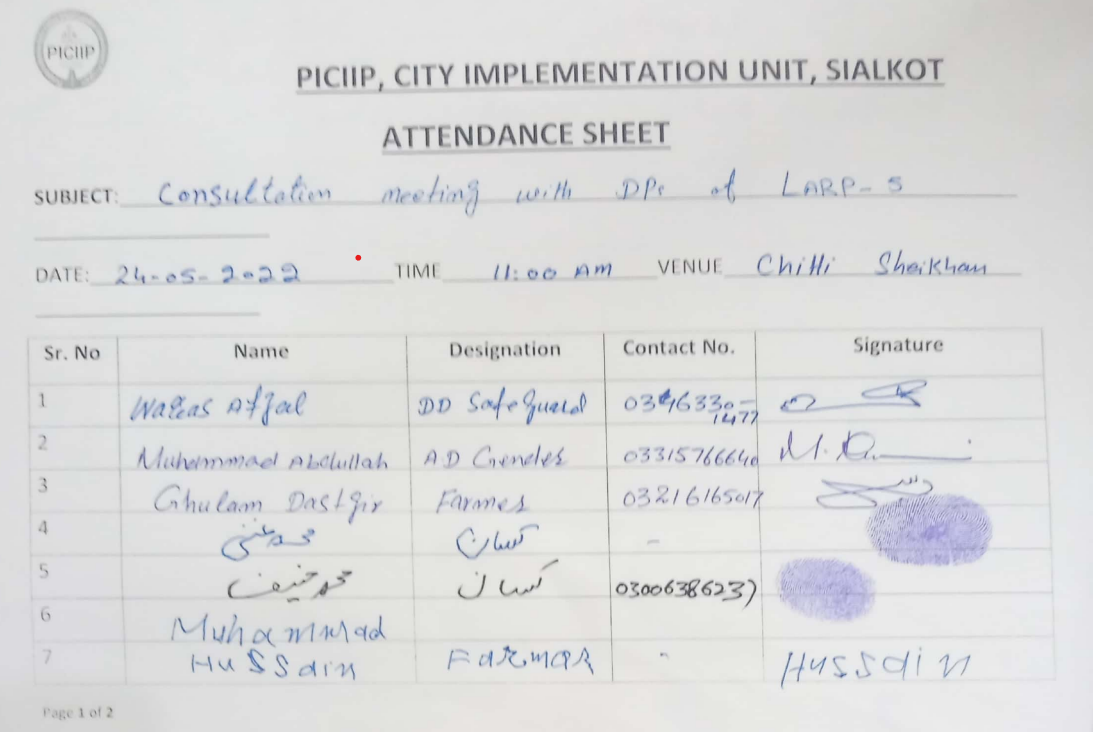 PICIIP
PICIIP, CITY IMPLEMENTATION UNIT, SIALKOT
ATTENDANCE SHEET
SUBJECT: Consultation meeting with DPs of LARP-5
DATE: 24-05-2022 TIME 11:00 AM VENUE Chitti Sheikhan
Sr. No Name Designation Contact No. Signature
1 Waqas Afzal DD Safeguard 0346330-1477
2 Muhammad Abdullah AD Gender 03315766640
3 Ghulam Dastgir Farmer 03216165017
4 محمد غنی کسان -
5 محمد حنیف کسان 03006386237
6 Muhammad
7 Hussain Farmar - Hussain
Page 1 of 2